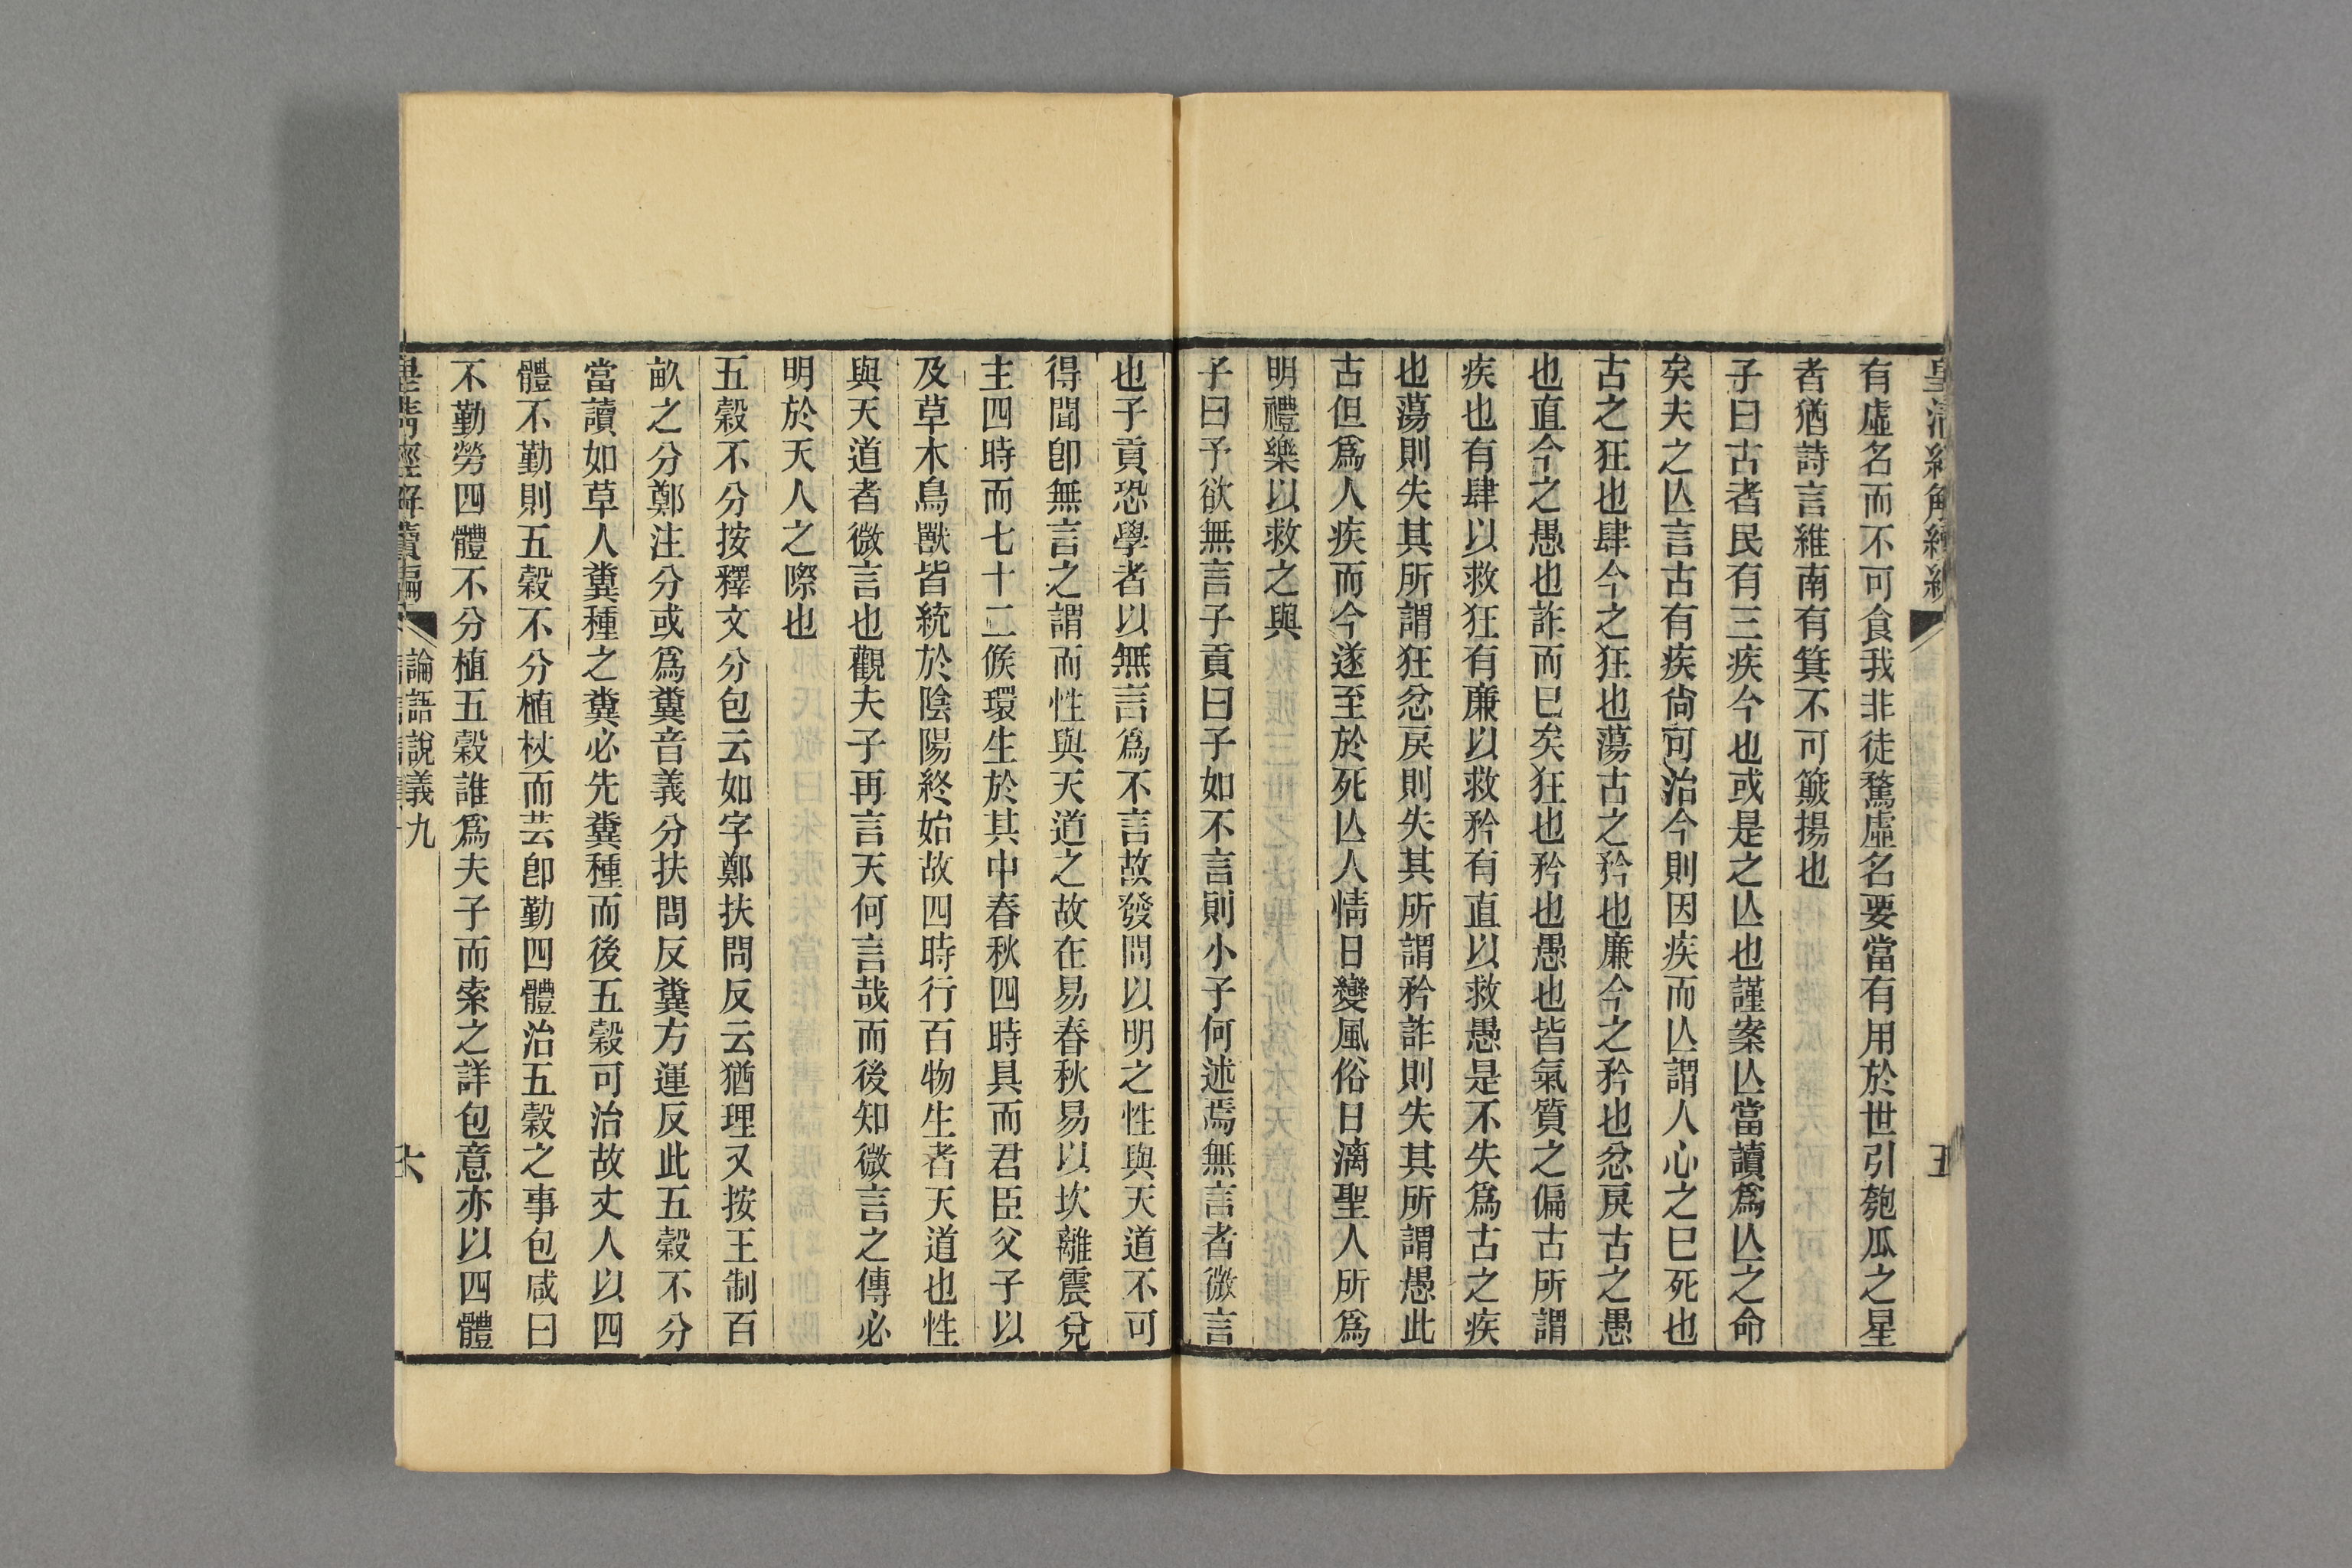 有虛名而不可食我非徒騖虛名要當有用於世引匏瓜之星
者猶詩言維南有箕不可簸揚也
子曰古者民有三疾今也或是之亾也謹案亾當讀爲亾之命
矣夫之亾言古有疾尙可治今則因疾而亾謂人心之巳死也
古之狂也肆今之狂也蕩古之矜也廉今之矜也忿戾古之愚
也直今之愚也詐而巳矣狂也矜也愚也皆氣質之偏古所謂
疾也有肆以救狂有廉以救矜有直以救愚是不失爲古之疾
也蕩則失其所謂狂忿戾則失其所謂矜詐則失其所謂愚此
古但爲人疾而今遂至於死亾人情日變風俗日漓聖人所爲
明禮樂以救之與
子曰予欲無言子貢曰子如不言則小子何述焉無言者微言
也子貢恐學者以無言爲不言故發問以明之性與天道不可
得聞卽無言之謂而性與天道之故在易春秋易以坎離震兌
主四時而七十二候環生於其中春秋四時具而君臣父子以
及草木鳥獸皆統於陰陽終始故四時行百物生者天道也性
與天道者微言也觀夫子再言天何言哉而後知微言之傳必
明於天人之際也
五穀不分按釋文分包云如字鄭扶問反云猶理又按王制百
畝之分鄭注分或爲糞音義分扶問反糞方運反此五穀不分
當讀如草人糞種之糞必先糞種而後五穀可治故丈人以四
體不勤則五穀不分植杖而芸卽勤四體治五穀之事包咸曰
不勤勞四體不分植五穀誰爲夫子而索之詳包意亦以四體
皇清經解續編
論語說義九
六